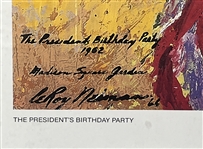 The President's Birthday Party
1962
Madison Square Garden
LeRoy Neiman
THE PRESIDENT'S BIRTHDAY PARTY